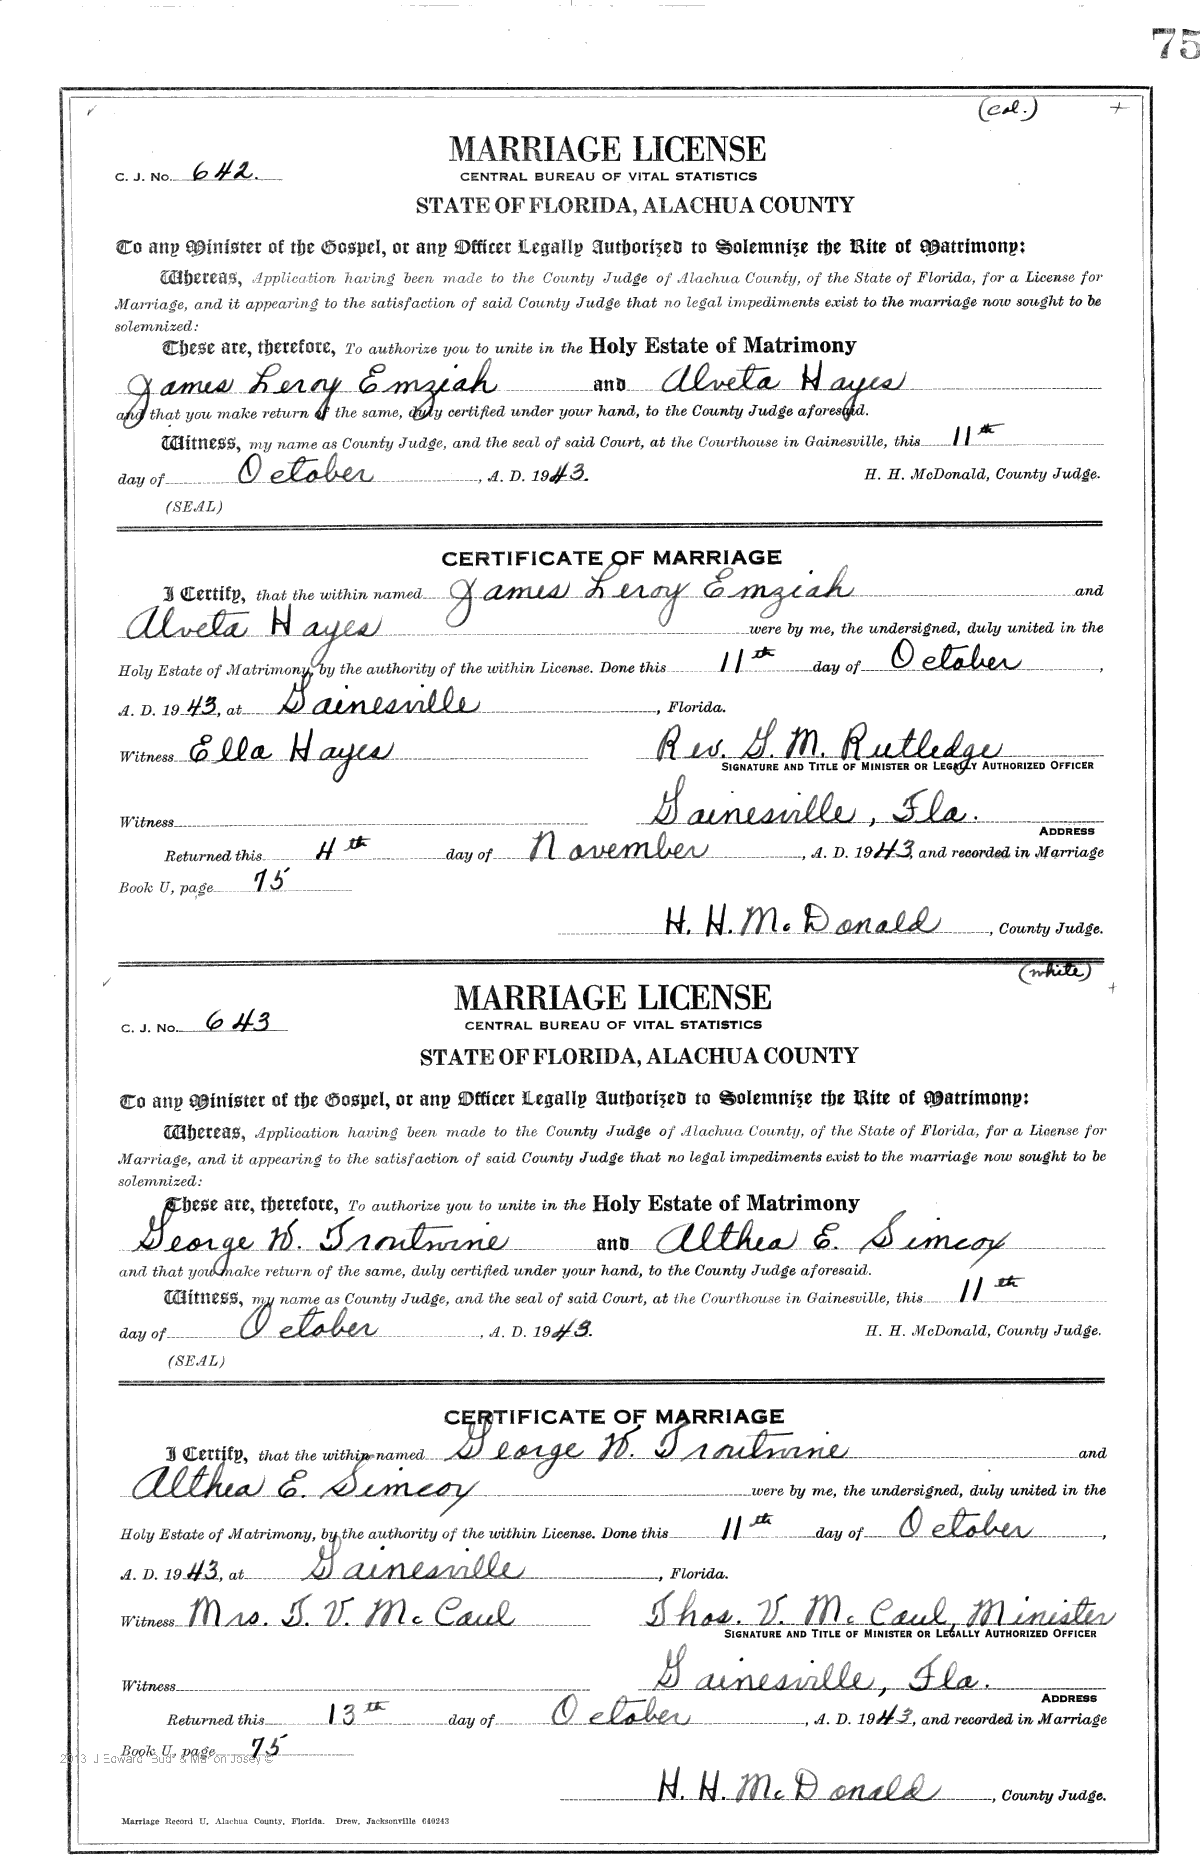 75
(col.)
MARRIAGE LICENSE
C. J. No. 642.
CENTRAL BUREAU OF VITAL STATISTICS
STATE OF FLORIDA, ALACHUA COUNTY
To any Minister of the Gospel, or any Officer Legally Authorized to Solemnize the Rite of Matrimony:
Whereas, Application having been made to the County Judge of Alachua County, of the State of Florida, for a License for
Marriage, and it appearing to the satisfaction of said County Judge that no legal impediments exist to the marriage now sought to be
solemnized:
These are, therefore, To authorize you to unite in the Holy Estate of Matrimony
James Leroy Emziah and Alveta Hayes
and that you make return of the same, duly certified under your hand, to the County Judge aforesaid.
Witness, my name as County Judge, and the seal of said Court, at the Courthouse in Gainesville, this 11th
day of October, A. D. 1943. H. H. McDonald, County Judge.
(SEAL)
CERTIFICATE OF MARRIAGE
I Certify, that the within named James Leroy Emziah and
Alveta Hayes were by me, the undersigned, duly united in the
Holy Estate of Matrimony, by the authority of the within License. Done this 11th day of October,
A. D. 1943, at Gainesville, Florida.
Witness Ella Hayes Rev. G. M. Rutledge
SIGNATURE AND TITLE OF MINISTER OR LEGALLY AUTHORIZED OFFICER
Witness Gainesville, Fla.
ADDRESS
Returned this 4th day of November, A. D. 1943, and recorded in Marriage
Book U, page 75
H. H. McDonald, County Judge.
(white)
MARRIAGE LICENSE
C. J. No. 643
CENTRAL BUREAU OF VITAL STATISTICS
STATE OF FLORIDA, ALACHUA COUNTY
To any Minister of the Gospel, or any Officer Legally Authorized to Solemnize the Rite of Matrimony:
Whereas, Application having been made to the County Judge of Alachua County, of the State of Florida, for a License for
Marriage, and it appearing to the satisfaction of said County Judge that no legal impediments exist to the marriage now sought to be
solemnized:
These are, therefore, To authorize you to unite in the Holy Estate of Matrimony
George W. Troutwine and Althea E. Simcox
and that you make return of the same, duly certified under your hand, to the County Judge aforesaid.
Witness, my name as County Judge, and the seal of said Court, at the Courthouse in Gainesville, this 11th
day of October, A. D. 1943. H. H. McDonald, County Judge.
(SEAL)
CERTIFICATE OF MARRIAGE
I Certify, that the within named George W. Troutwine and
Althea E. Simcox were by me, the undersigned, duly united in the
Holy Estate of Matrimony, by the authority of the within License. Done this 11th day of October,
A. D. 1943, at Gainesville, Florida.
Witness Mrs. T. V. McCaul Thos. V. McCaul, Minister
SIGNATURE AND TITLE OF MINISTER OR LEGALLY AUTHORIZED OFFICER
Witness Gainesville, Fla.
ADDRESS
Returned this 13th day of October, A. D. 1943, and recorded in Marriage
Book U, page 75
2013 J Edward "Bud" & Marion Josey ©
H. H. McDonald, County Judge.
Marriage Record U, Alachua County, Florida. Drew, Jacksonville 640243